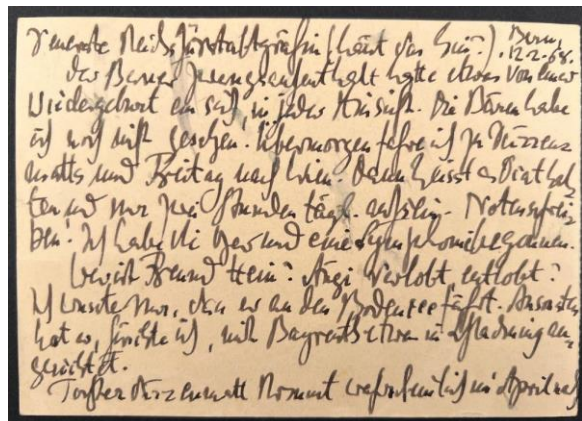 Verehrteste Reichsfürstabtgräfin (haut das hin?) Bern,
12.2.68.
das Berner Zwangsaufenthalt hatte etwas von einer
Wiedergeburt an sich, in jeder Hinsicht. Die Bären habe
ich noch nicht gesehen. Übermorgen fahre ich zu Dürrenmatts
und Freitag nach Wien. Dann heisst es Diät hal
ten und nur zwei Stunden tägl. aufsein. Notenschrei
ben! Ich habe hier und eine Symphonie begonnen.
Freund Hein? Angi verlobt, entlobt?
Ich wusste nur, dass er an den Bodensee fährt. Ansonsten
hat er, fürchte ich, mit Bayreuth etwas in an
gerichtet.
Dürrenmatt kommt wahrscheinlich im April nach